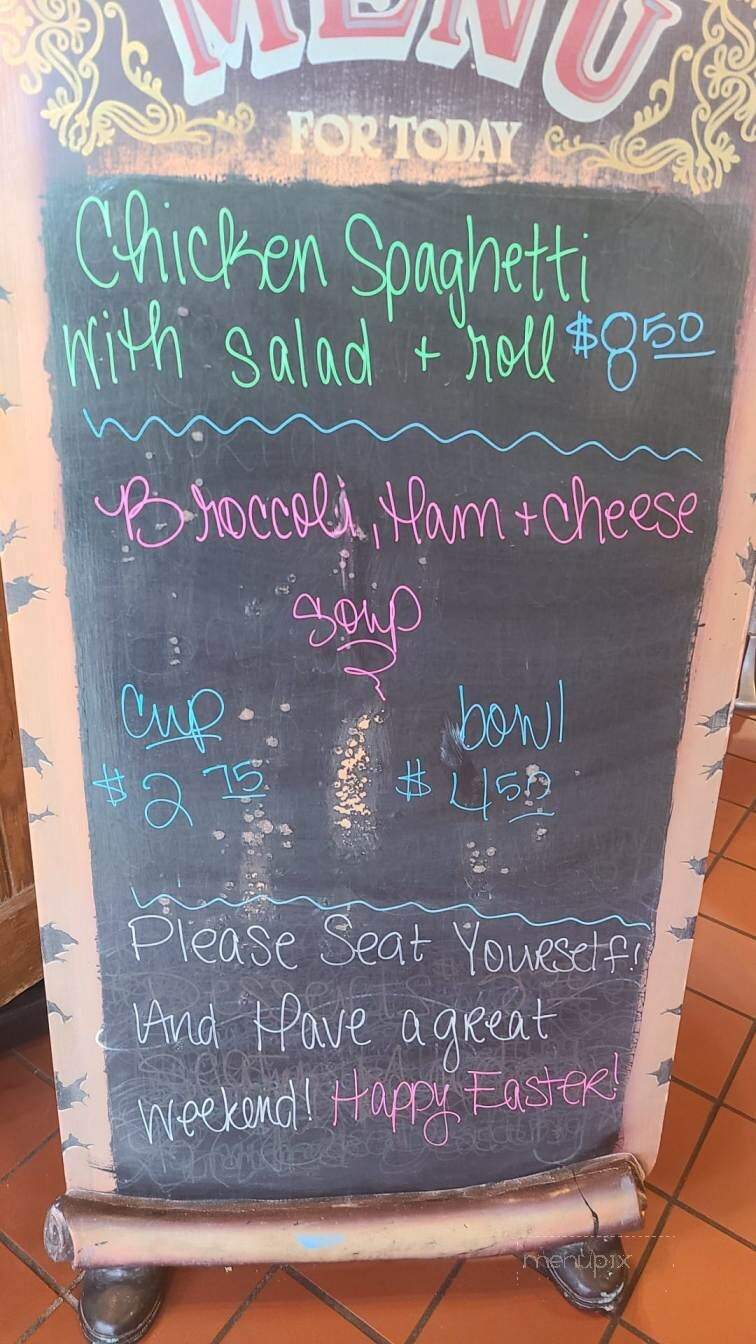 MENU
FOR TODAY
Chicken Spaghetti
with salad + roll $8.50
Broccoli, Ham + Cheese
soup
cup bowl
$2.75 $4.50
Please Seat Yourself!
And Have a great
weekend! Happy Easter!
menupix